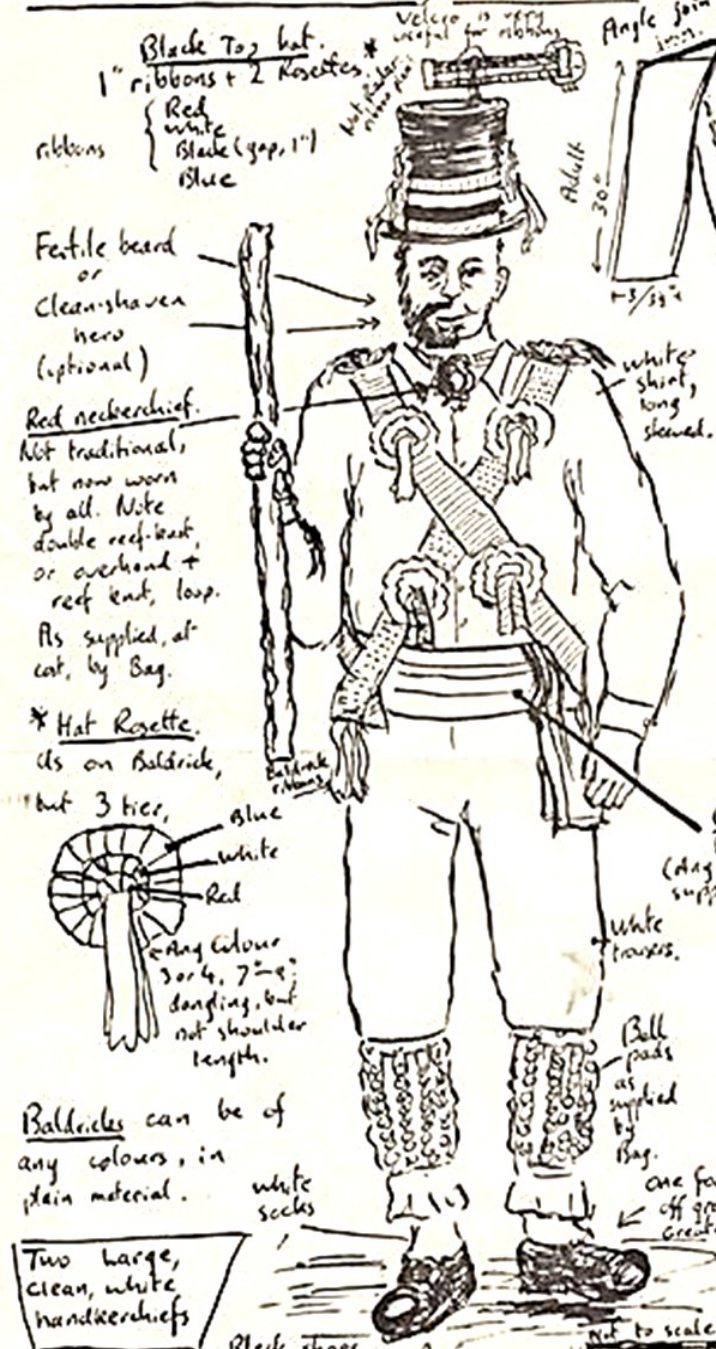 Black Top hat.
1" ribbons + 2 Rosettes.*
ribbons
Red
White
Black (gap, 1")
Blue
Velcro is very
useful for ribbons
Angle join
Adult
30"
Fertile beard
or
Clean-shaven
hero
(optional)
white
shirt,
long
sleeved.
Red neckerchief.
Not traditional,
but now worn
by all. Note
double reef-knot,
or overhand +
reef knot, loop.
As supplied, at
cost, by Bag.
* Hat Rosette.
As on Baldrick,
but 3 tier,
Blue
White
Red
Any Colour
3 or 4, 7"-9"
dangling, but
not shoulder
length.
Baldrick
ribbons
White
trousers.
Bell
pads
as
supplied
by
Bag.
Baldricks can be of
any colours, in
plain material.
white
socks
one
off
Two Large,
clean, white
handkerchiefs
Black shoes
Not to scale